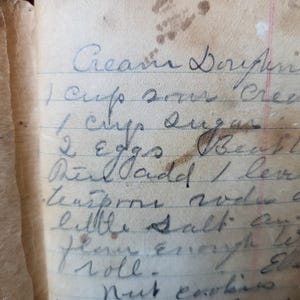 Cream Doughn
1 cup sour Crea
1 cup sugar
2 eggs Beat
then add 1 leve
teaspoon soda a
little salt an
flour enough to
roll.
Nut cookies